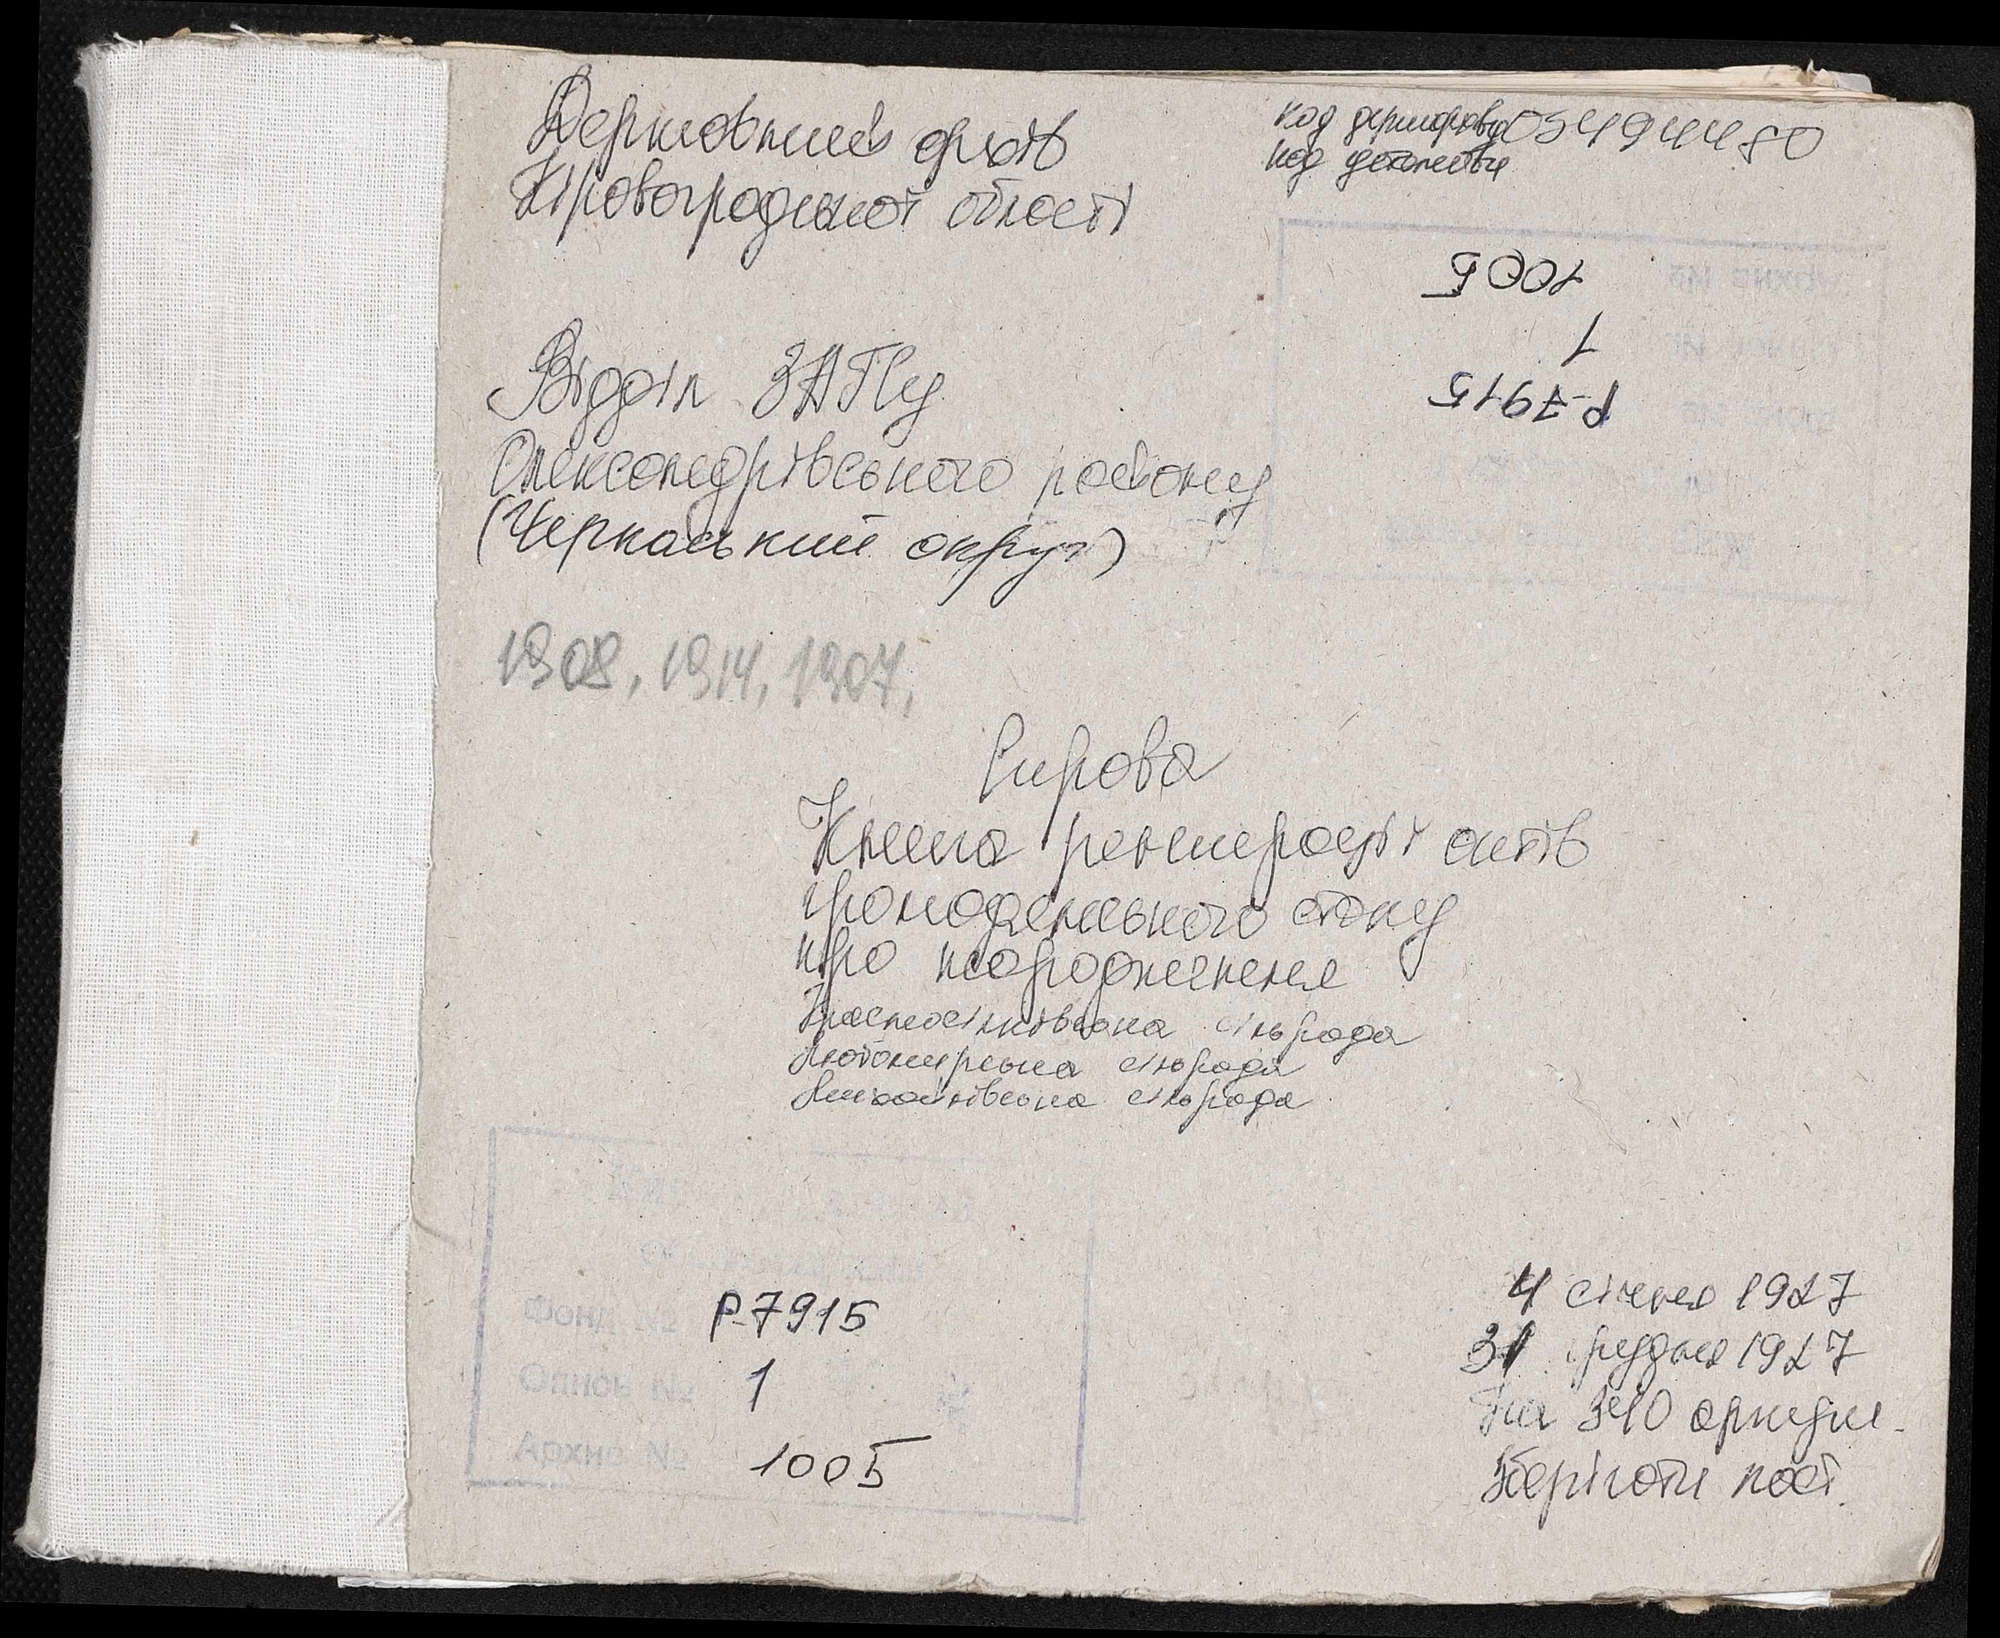 Державний архів
Кіровоградської області
код держархіву 03494480
код установи
1005
1
Р-7915
Відділ ЗАГСу
Олександрівського району
(Черкаський округ)
1908, 1914, 1907,
Книга реєстрації актів
громадянського стану
про народження
Красносілківська сільрада
Любомирська сільрада
Михайлівська сільрада
Фонд № Р-7915
Опись № 1
Архив № 1005
4 січня 1927
31 грудня 1927
На 340 аркуш.
Зберігати пост.